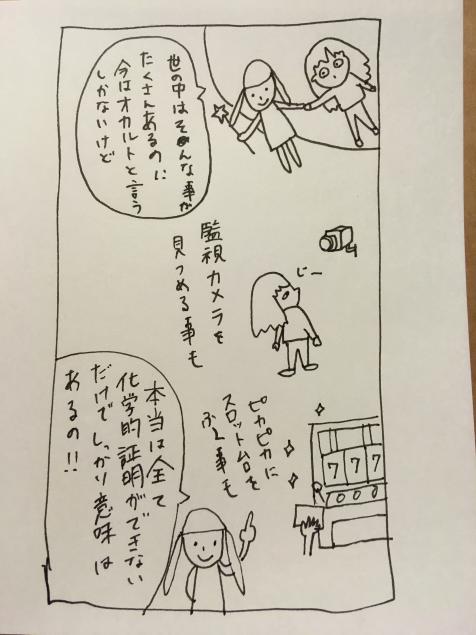 世の中はそんな事が
たくさんあるのに
今はオカルトと言う
しかないけど
監視カメラを
見つめる事も
じー
ピカピカに
スロット台を
ふく事も
777
本当は全て
化学的証明ができない
だけでしっかり意味は
あるの!!